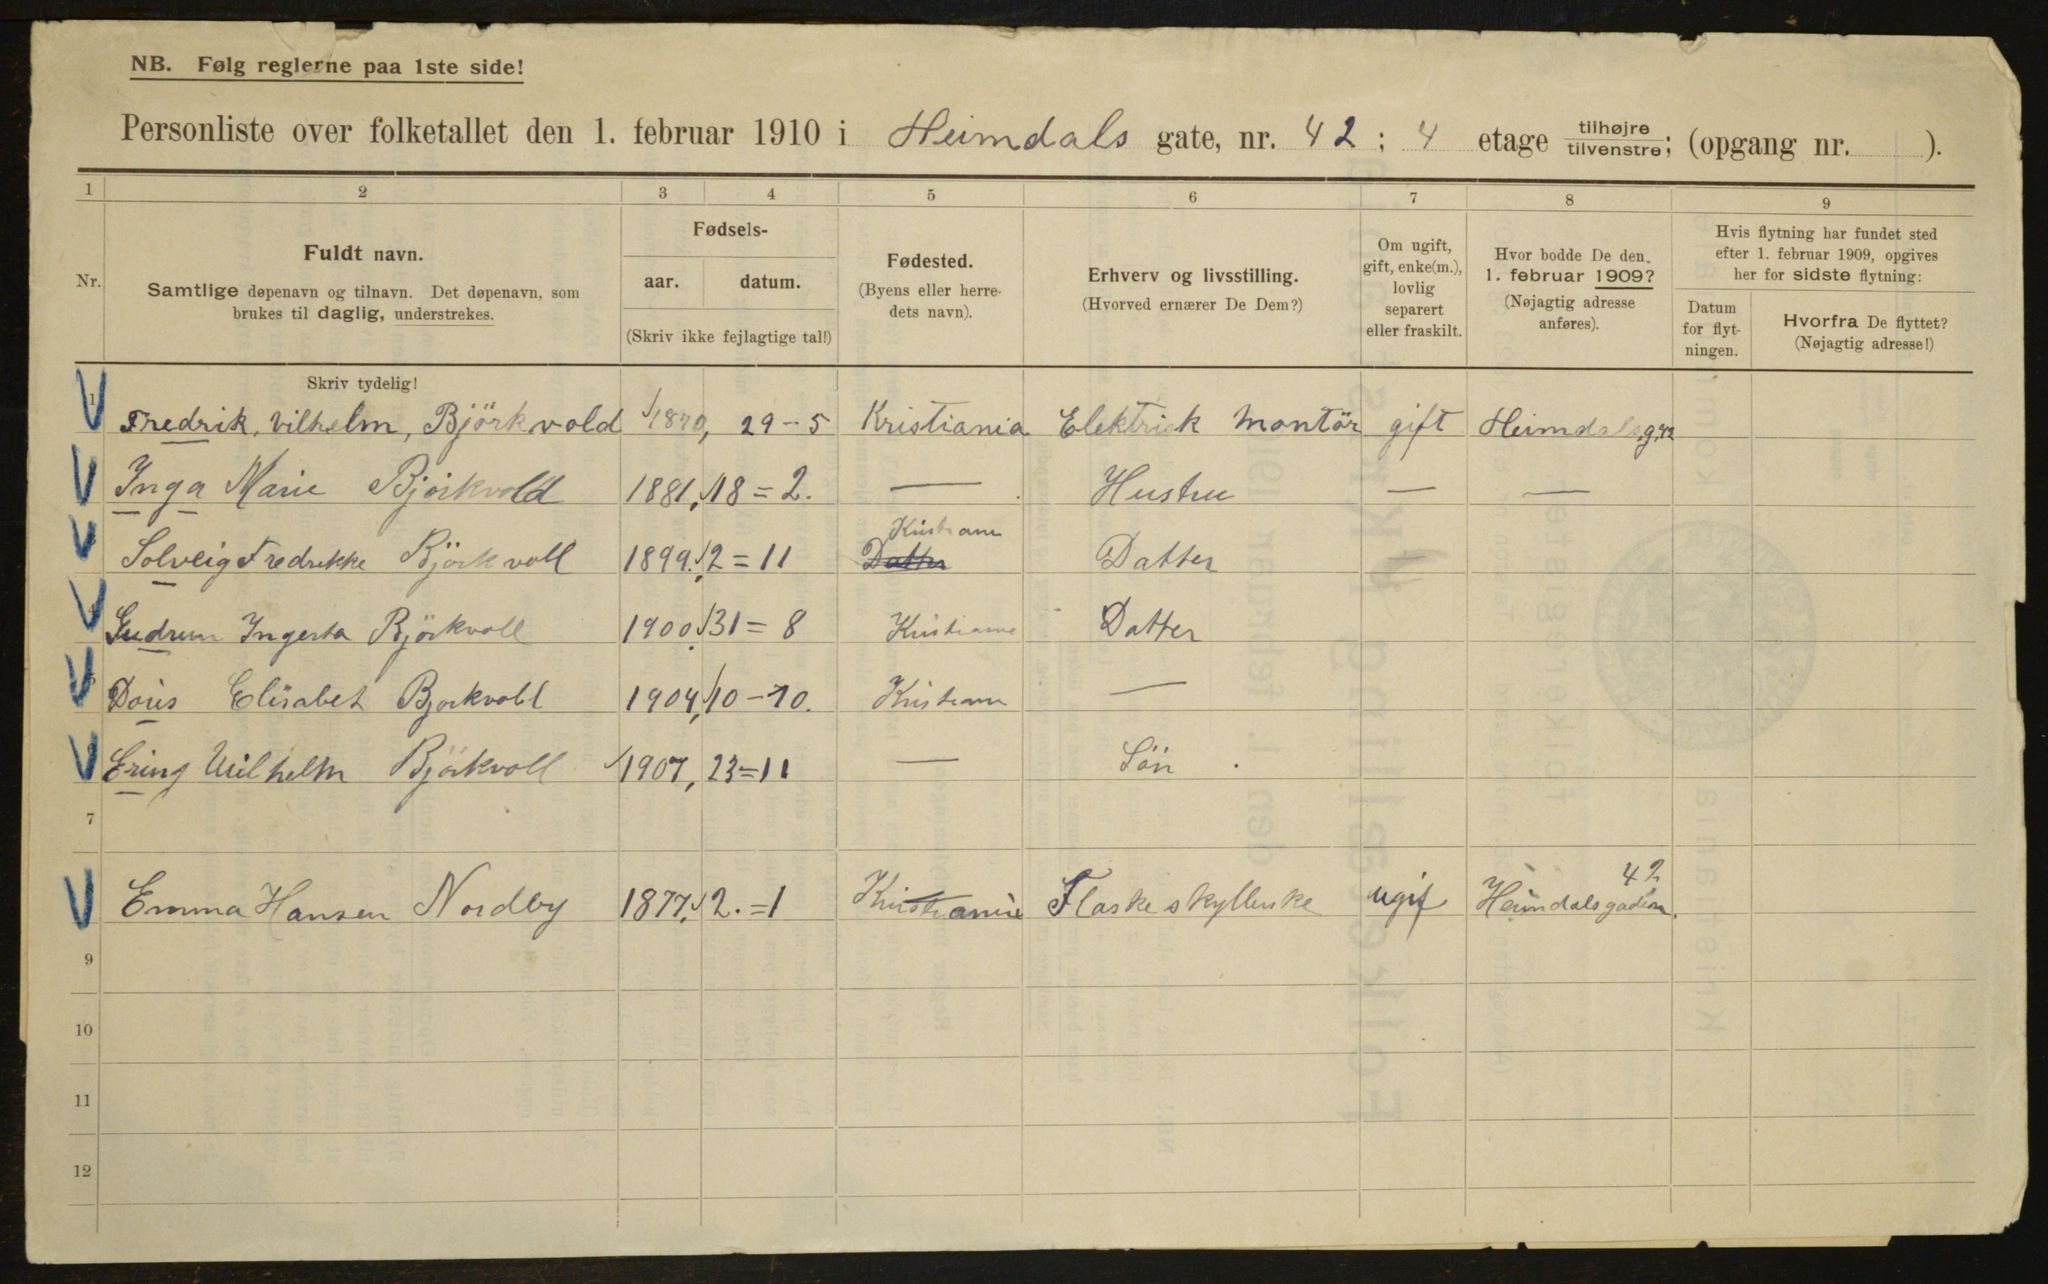 NB. Følg reglerne paa 1ste side!
Personliste over folketallet den 1. februar 1910 i Heimdals gate, nr. 42 ; 4 etage tilhøjre / tilvenstre ; (opgang nr. ).
1 2 3 4 5 6 7 8 9
Nr.
Fuldt navn.
Samtlige døpenavn og tilnavn. Det døpenavn, som
brukes til daglig, understrekes.
Fødsels-
aar. datum.
(Skriv ikke fejlagtige tal!)
Fødested.
(Byens eller herre-
dets navn).
Erhverv og livsstilling.
(Hvorved ernærer De Dem?)
Om ugift,
gift, enke(m.),
lovlig
separert
eller fraskilt.
Hvor bodde De den
1. februar 1909?
(Nøjagtig adresse
anføres).
Hvis flytning har fundet sted
efter 1. februar 1909, opgives
her for sidste flytning:
Datum
for flyt-
ningen.
Hvorfra De flyttet?
(Nøjagtig adresse!)
Skriv tydelig!
1 Fredrik, Vilhelm, Björkvold 1870, 29-5 Kristiania Elektrisk Montör gift Heimdalsg. 42
Inga Marie Bjørkvold 1881, 18=2. — Hustru — —
Solveig Fredrikke Björkvoll 1899. 2=11 Datter Kristiania Datter
Gudrun Ingerta Björkvoll 1900. 31=8 Kristiania Datter
Doris Elisabet Bjorkvoll 1904, 10-10. Kristiania —
Ering Wilhelm Björkvoll 1907, 23=11 — Sön
7
Emma Hansen Nordby 1877, 2.=1 Kristianie Flaskeskyllerske ugif Heimdalsgaden 42
9
10
11
12